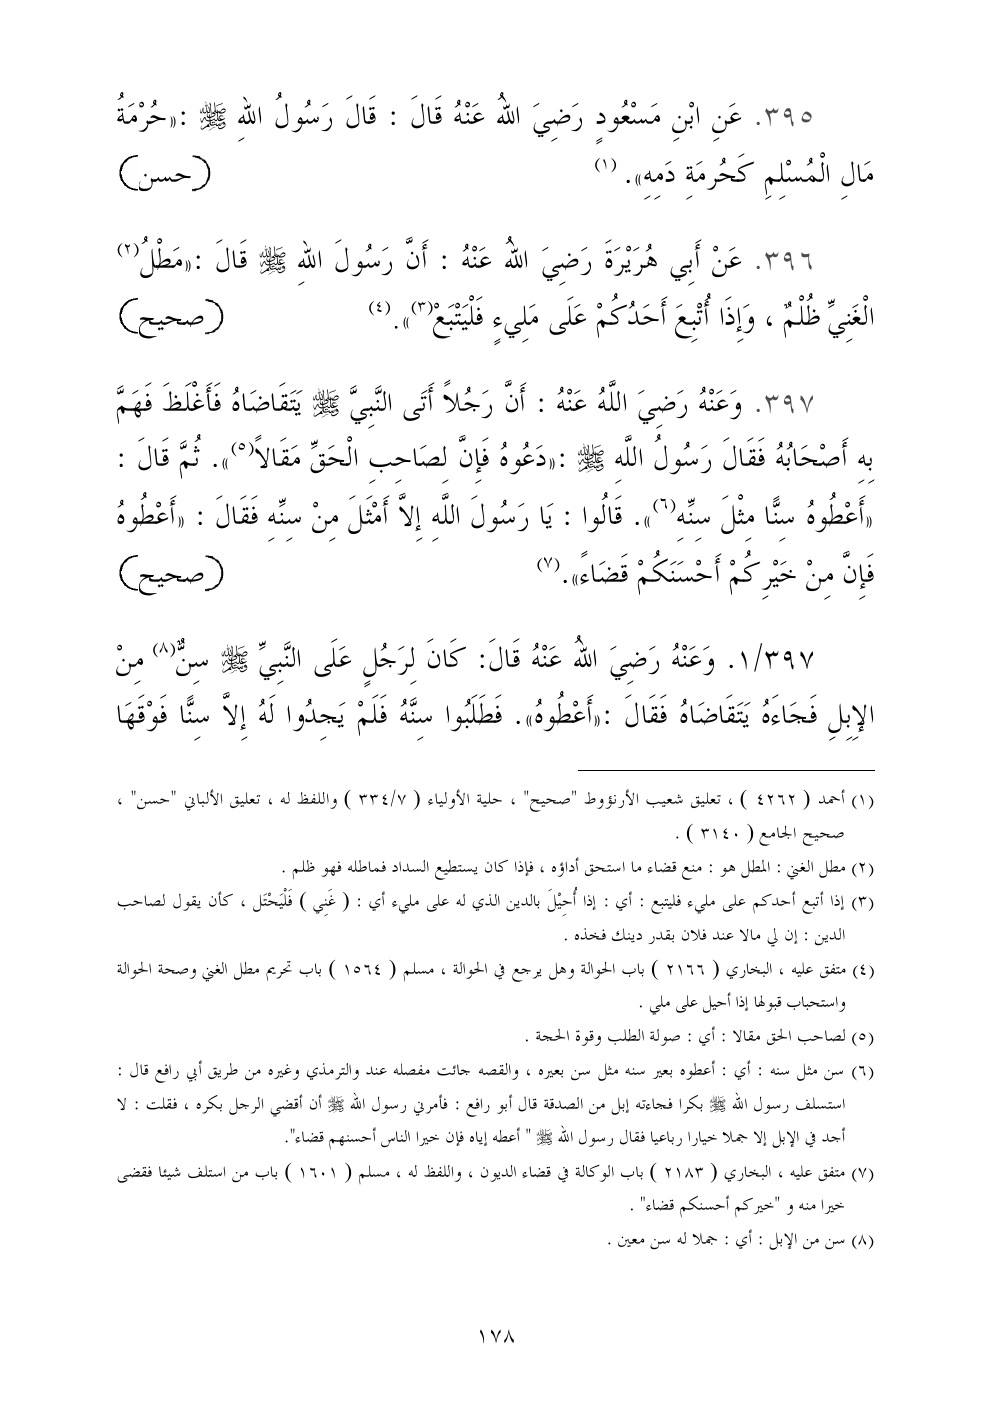 ٣٩٥. عَنِ ابْنِ مَسْعُودٍ رَضِيَ اللهُ عَنْهُ قَالَ : قَالَ رَسُولُ اللهِ ﷺ :«حُرْمَةُ
مَالِ الْمُسْلِمِ كَحُرمَةِ دَمِهِ». (١) (حسن)
٣٩٦. عَنْ أَبِي هُرَيْرَةَ رَضِيَ اللهُ عَنْهُ : أَنَّ رَسُولَ اللهِ ﷺ قَالَ :«مَطْلُ(٢)
الْغَنِيِّ ظُلْمٌ ، وَإِذَا أُتْبِعَ أَحَدُكُمْ عَلَى مَلِيءٍ فَلْيَتْبَعْ(٣)».(٤) (صحيح)
٣٩٧. وَعَنْهُ رَضِيَ اللَّهُ عَنْهُ : أَنَّ رَجُلاً أَتَى النَّبِيَّ ﷺ يَتَقَاضَاهُ فَأَغْلَظَ فَهَمَّ
بِهِ أَصْحَابُهُ فَقَالَ رَسُولُ اللَّهِ ﷺ :«دَعُوهُ فَإِنَّ لِصَاحِبِ الْحَقِّ مَقَالاً(٥)». ثُمَّ قَالَ :
«أَعْطُوهُ سِنًّا مِثْلَ سِنِّهِ(٦)». قَالُوا : يَا رَسُولَ اللَّهِ إِلاَّ أَمْثَلَ مِنْ سِنِّهِ فَقَالَ : «أَعْطُوهُ
فَإِنَّ مِنْ خَيْرِكُمْ أَحْسَنَكُمْ قَضَاءً».(٧) (صحيح)
١/٣٩٧. وَعَنْهُ رَضِيَ اللهُ عَنْهُ قَالَ: كَانَ لِرَجُلٍ عَلَى النَّبِيِّ ﷺ سِنٌّ(٨) مِنْ
الإِبِلِ فَجَاءَهُ يَتَقَاضَاهُ فَقَالَ :«أَعْطُوهُ». فَطَلَبُوا سِنَّهُ فَلَمْ يَجِدُوا لَهُ إِلاَّ سِنًّا فَوْقَهَا
(١) أحمد ( ٤٢٦٢ ) ، تعليق شعيب الأرنؤوط "صحيح" ، حلية الأولياء ( ٣٣٤/٧ ) واللفظ له ، تعليق الألباني "حسن" ،
صحيح الجامع ( ٣١٤٠ ) .
(٢) مطل الغني : المطل هو : منع قضاء ما استحق أداؤه ، فإذا كان يستطيع السداد فماطله فهو ظلم .
(٣) إذا أتبع أحدكم على مليء فليتبع : أي : إذا أُحِيْلَ بالدين الذي له على مليء أي : ( غَنِي ) فَلْيَحْتَل ، كأن يقول لصاحب
الدين : إن لي مالا عند فلان بقدر دينك فخذه .
(٤) متفق عليه ، البخاري ( ٢١٦٦ ) باب الحوالة وهل يرجع في الحوالة ، مسلم ( ١٥٦٤ ) باب تحريم مطل الغني وصحة الحوالة
واستحباب قبولها إذا أحيل على ملي .
(٥) لصاحب الحق مقالا : أي : صولة الطلب وقوة الحجة .
(٦) سن مثل سنه : أي : أعطوه بعير سنه مثل سن بعيره ، والقصه جائت مفصله عند والترمذي وغيره من طريق أبي رافع قال :
استسلف رسول الله ﷺ بكرا فجاءته إبل من الصدقة قال أبو رافع : فأمرني رسول الله ﷺ أن أقضي الرجل بكره ، فقلت : لا
أجد في الإبل إلا جملا خيارا رباعيا فقال رسول الله ﷺ " أعطه إياه فإن خيرا الناس أحسنهم قضاء".
(٧) متفق عليه ، البخاري ( ٢١٨٣ ) باب الوكالة في قضاء الديون ، واللفظ له ، مسلم ( ١٦٠١ ) باب من استلف شيئا فقضى
خيرا منه و "خيركم أحسنكم قضاء" .
(٨) سن من الإبل : أي : جملا له سن معين .
١٧٨